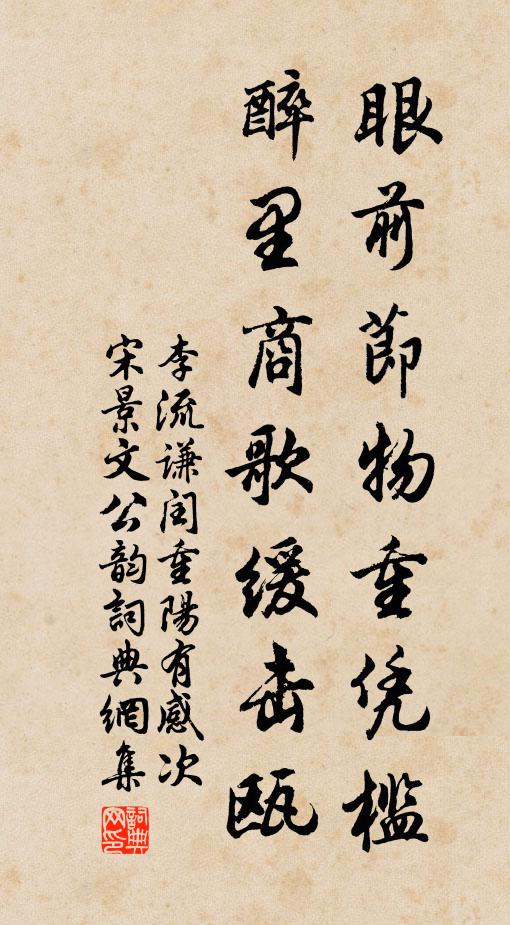 眼前節物重凭槛
醉里商歌缓击瓯
李流谦闰重陽有感次
宋景文公韵詞典網集
詞典网印